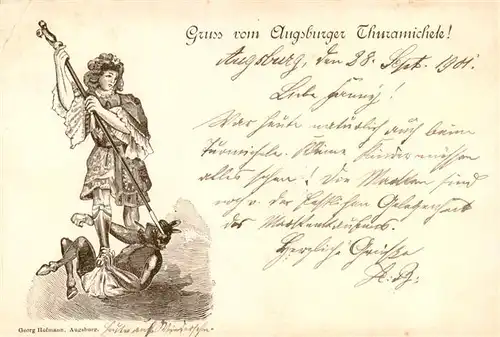 Gruss vom Augsburger Thuramichele!
Augsburg, den 28. Sept. 1901.
Liebe Fanny!
War heute natürlich auch beim
Turmichele. Kleine Kinder müssen
alles sehen! Die Marken sind
noch v. der Gelegenheit
des
Herzliche Grüße
Georg Hofmann, Augsburg.